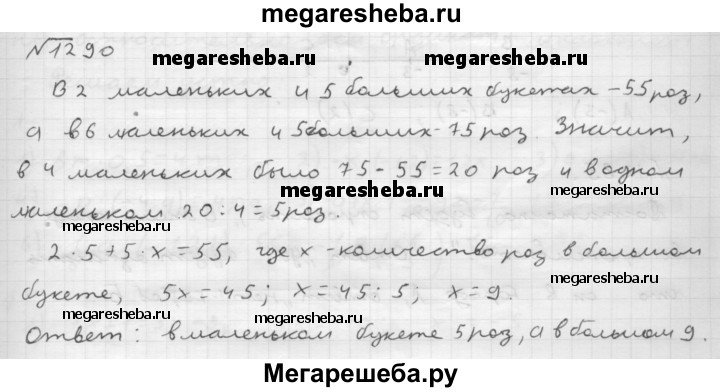 megaresheba.ru
№1290
megaresheba.ru megaresheba.ru
В 2 маленьких и 5 больших букетах - 55 роз,
а в 6 маленьких и 5 больших - 75 роз. Значит,
в 4 маленьких было 75 - 55 = 20 роз и в одном
megaresheba.ru
маленьком 20 : 4 = 5 роз.
megaresheba.ru
2 · 5 + 5 · x = 55, где x - количество роз в большом
megaresheba.ru
букете, 5x = 45; x = 45 : 5; x = 9.
megaresheba.ru megaresheba.ru
Ответ: в маленьком букете 5 роз, а в большом 9.
Мегарешеба.ру